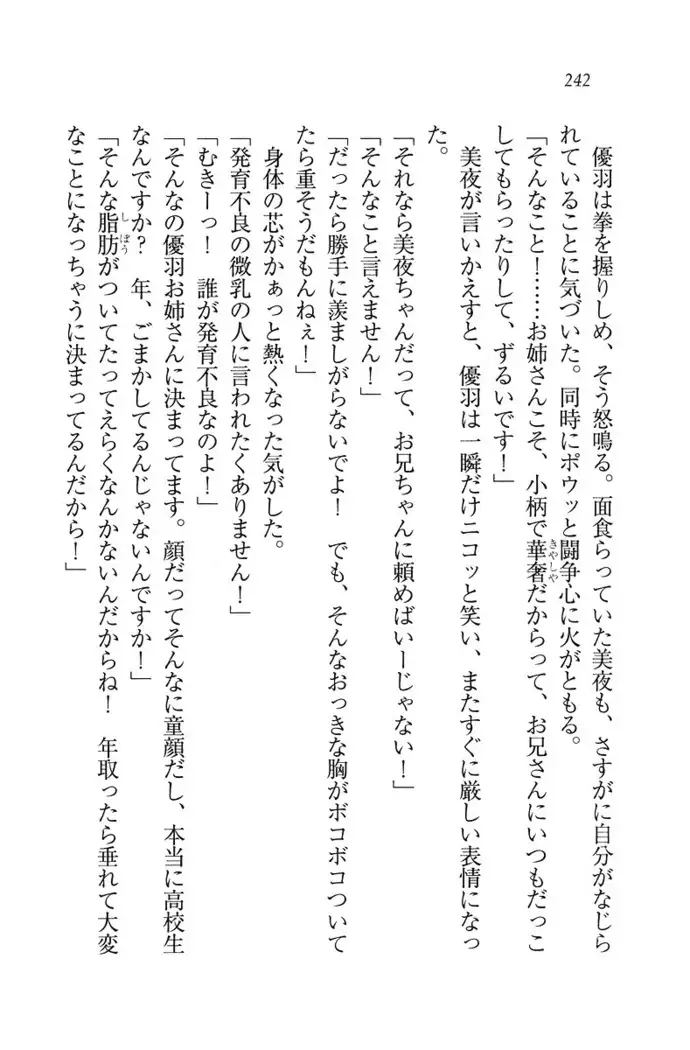 242
優羽は拳を握りしめ、そう怒鳴る。面食らっていた美夜も、さすがに自分がなじら
れていることに気づいた。同時にポウッと闘争心に火がともる。
「そんなこと！……お姉さんこそ、小柄で華奢だからって、お兄さんにいつもだっこ
きやしや
してもらったりして、ずるいです！」
美夜が言いかえすと、優羽は一瞬だけニコッと笑い、またすぐに厳しい表情になっ
た。
「それなら美夜ちゃんだって、お兄ちゃんに頼めばいーじゃない！」
「そんなこと言えません！」
「だったら勝手に羨ましがらないでよ！　でも、そんなおっきな胸がボコボコついて
たら重そうだもんねぇ！」
身体の芯がかぁっと熱くなった気がした。
「発育不良の微乳の人に言われたくありません！」
「むきーっ！　誰が発育不良なのよ！」
「そんなの優羽お姉さんに決まってます。顔だってそんなに童顔だし、本当に高校生
なんですか？　年、ごまかしてるんじゃないんですか！」
「そんな脂肪がついてたってえらくなんかないんだからね！　年取ったら垂れて大変
しぼう
なことになっちゃうに決まってるんだから！」